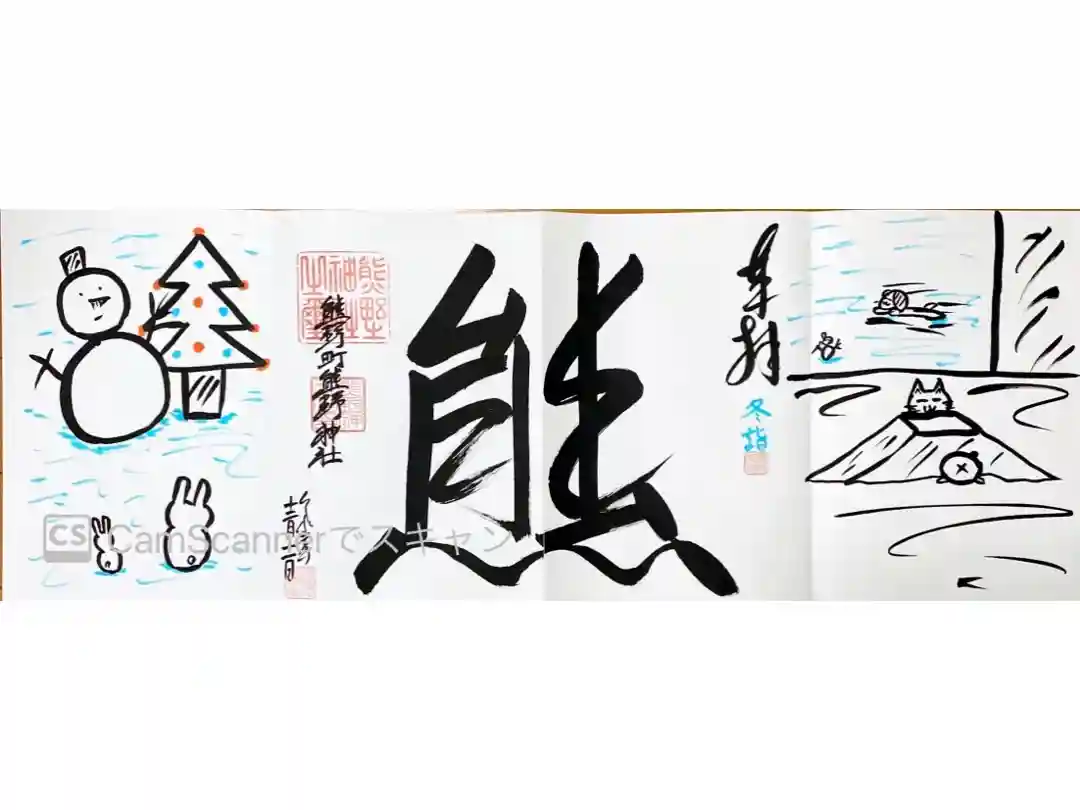 奉拝
冬詣
熊
熊野神社之璽
熊野町熊野神社
CS CamScannerでスキャン